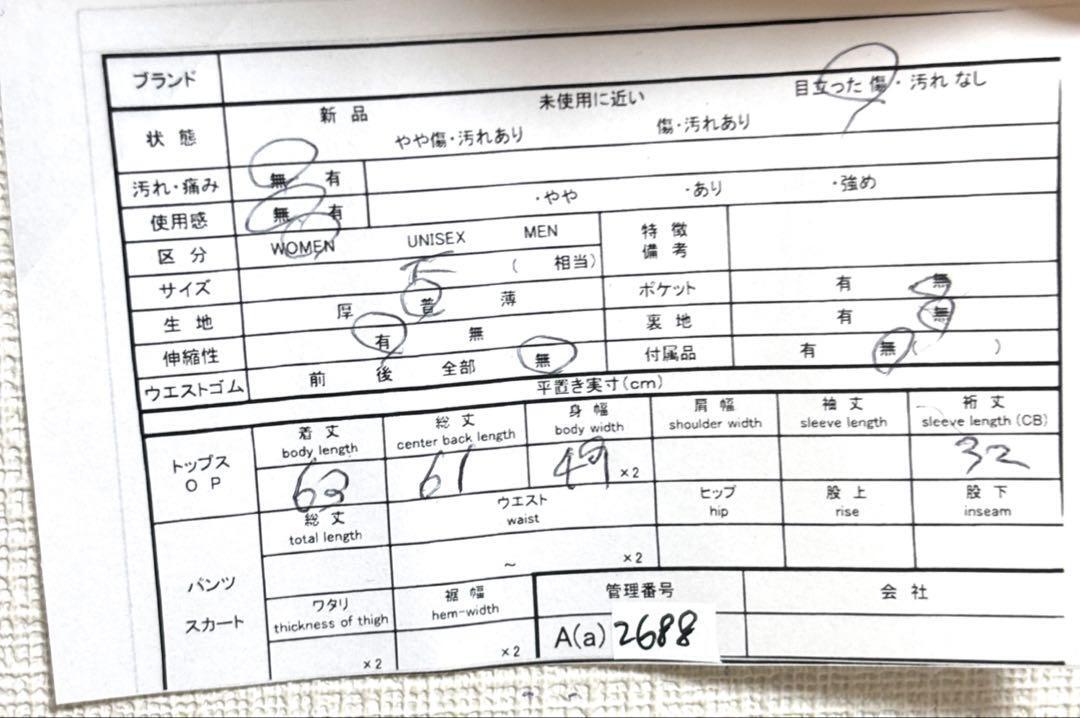 ブランド
状態 新品 未使用に近い 目立った傷・汚れなし
やや傷・汚れあり 傷・汚れあり
汚れ・痛み 無 有
使用感 無 有 ・やや ・あり ・強め
区分 WOMEN UNISEX MEN 特徴
備考
サイズ F ( 相当)
生地 厚 普 薄 ポケット 有 無
伸縮性 有 無 裏地 有 無
ウエストゴム 前 後 全部 無 付属品 有 無( )
平置き実寸(cm)
トップス
OP
着丈 総丈 身幅 肩幅 袖丈 裄丈
body length center back length body width shoulder width sleeve length sleeve length (CB)
63 61 49 ×2 32
パンツ
スカート
総丈 ウエスト ヒップ 股上 股下
total length waist hip rise inseam
~ ×2
ワタリ 裾幅 管理番号 会社
thickness of thigh hem-width
×2 ×2 A(a) 2688